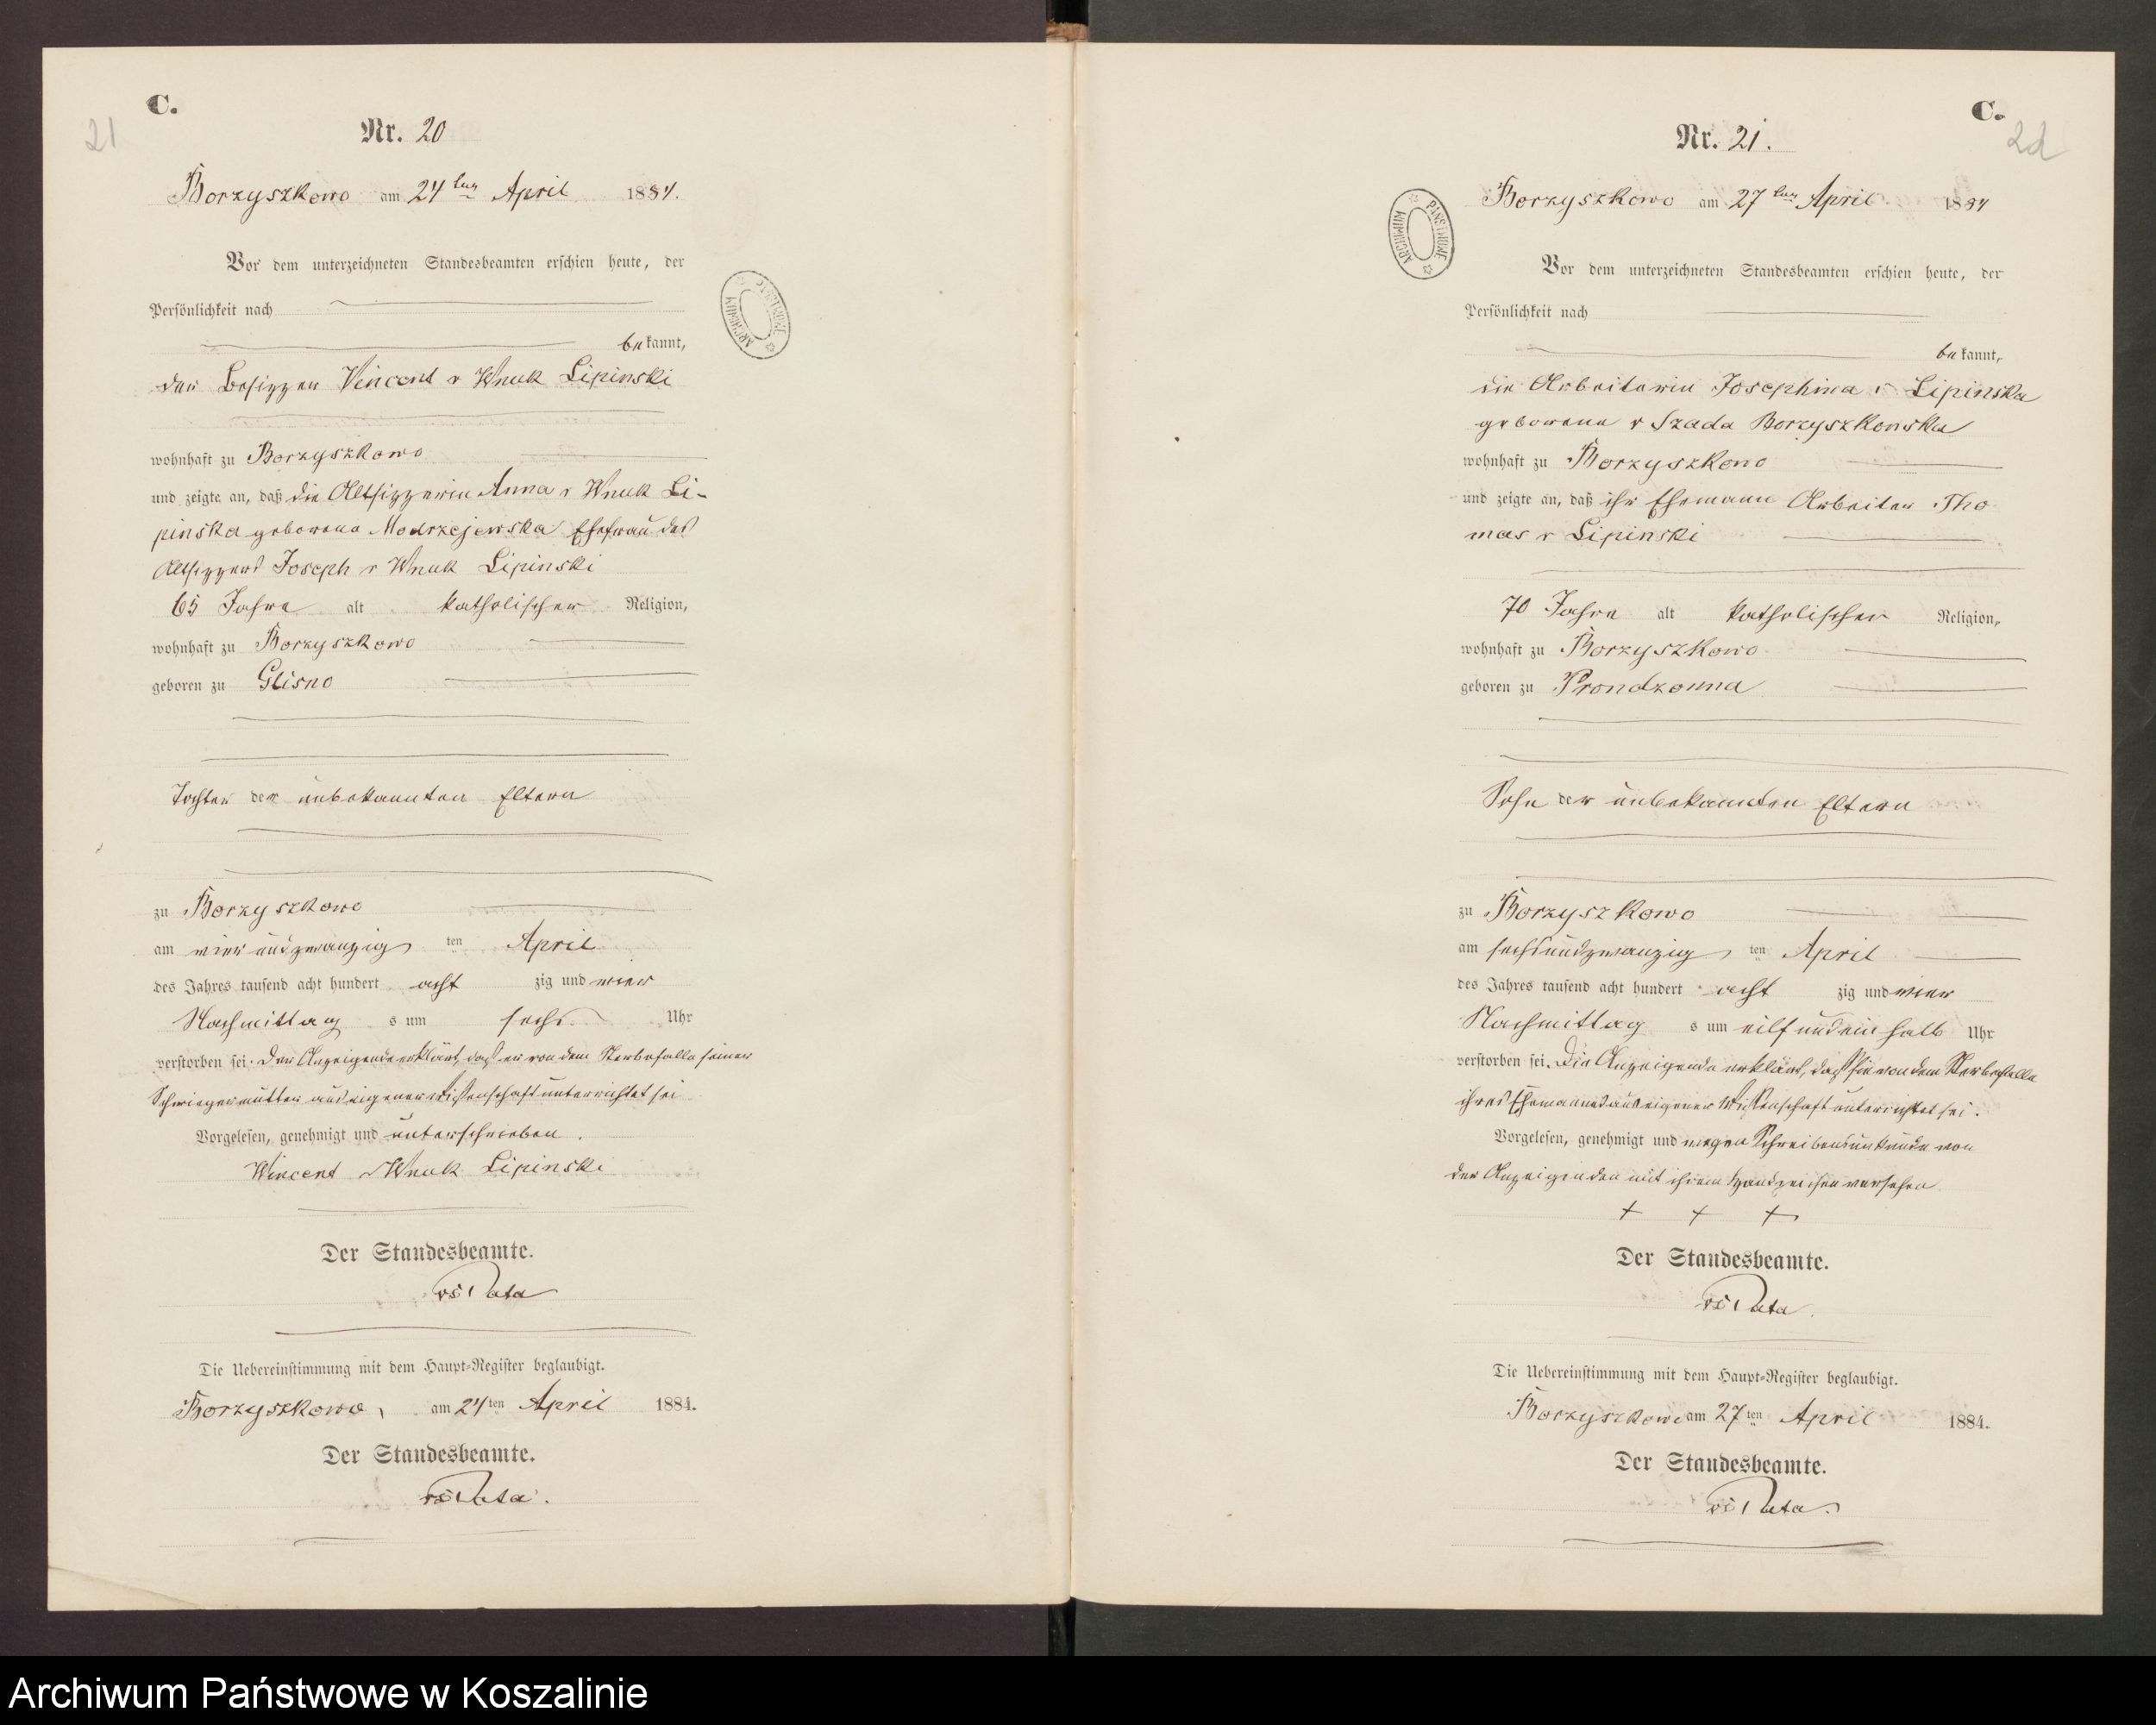 C.
21
Nr. 20
Borzyszkowo am 24ten April 1884.
Vor dem unterzeichneten Standesbeamten erschien heute, der
Persönlichkeit nach
bekannt,
der Besitzer Vincent v Wnuk Lipinski
wohnhaft zu Borzyszkowo
und zeigte an, daß die Altsitzerin Anna v Wnuk Li-
pinska geborene Modrzejewska Ehefrau des
Altsitzers Joseph v Wnuk Lipinski
65 Jahre alt katholischer Religion,
wohnhaft zu Borzyszkowo
geboren zu Glisno
Tochter der unbekannten Eltern
zu Borzyszkowo
am vier und zwanzig ten April
des Jahres tausend acht hundert acht zig und vier
Nachmittag s um sechs Uhr
verstorben sei. Der Anzeigende erklärt, daß er von dem Sterbefalle seiner
Schwiegermutter aus eigener Wissenschaft unterrichtet sei
Vorgelesen, genehmigt und unterschrieben.
Wincent v Wnuk Lipinski
Der Standesbeamte.
Die Uebereinstimmung mit dem Haupt-Register beglaubigt.
Borzyszkowo, am 24ten April 1884.
Der Standesbeamte.
C.
22
Nr. 21.
Borzyszkowo am 27ten April 1884
Vor dem unterzeichneten Standesbeamten erschien heute, der
Persönlichkeit nach
bekannt,
die Arbeiterin Josephina v Lipinska
geborene v Szada Borzyszkowska
wohnhaft zu Borzyszkowo
und zeigte an, daß ihr Ehemann Arbeiter Tho
mas v Lipinski
70 Jahre alt katholischer Religion,
wohnhaft zu Borzyszkowo
geboren zu Prondzonna
Sohn der unbekannten Eltern
zu Borzyszkowo
am sechsundzwanzig ten April
des Jahres tausend acht hundert acht zig und vier
Nachmittag s um eilf und ein halb Uhr
verstorben sei. Die Anzeigende erklärt, daß sie von dem Sterbefalle
ihres Ehemannes aus eigener Wissenschaft unterrichtet sei.
Vorgelesen, genehmigt und wegen Schreibensunkunde von
der Anzeigenden mit ihrem Handzeichen versehen
+ + +
Der Standesbeamte.
Die Uebereinstimmung mit dem Haupt-Register beglaubigt.
Borzyszkowo am 27ten April 1884.
Der Standesbeamte.
ARCHIWUM PAŃSTWOWE
ARCHIWUM PAŃSTWOWE
Archiwum Państwowe w Koszalinie